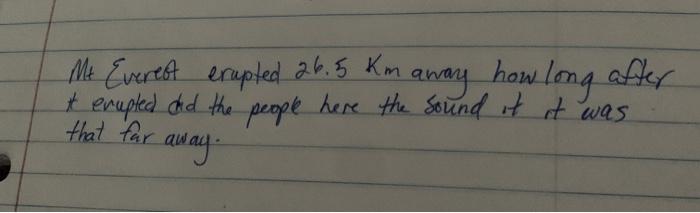 Mt Everest erupted 26.5 Km away how long after
it erupted did the people here the sound if it was
that far away.